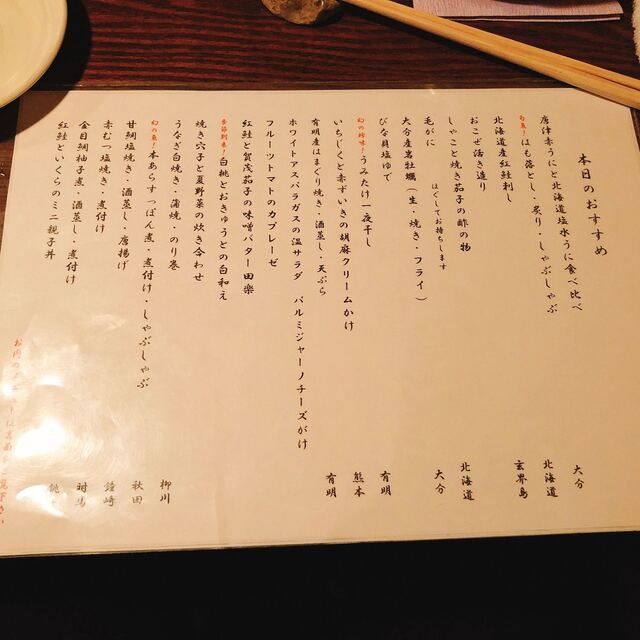 本日のおすすめ
唐津赤うにと北海道塩水うに食べ比べ
名残！はも落とし・炙り・しゃぶしゃぶ 大分
北海道産紅鮭刺し 北海道
おこぜ活き造り 玄界島
しゃこと焼き茄子の酢の物
毛がに ほぐしてお持ちします 北海道
大分産岩牡蠣（生・焼き・フライ） 大分
びな貝塩ゆで 有明
幻の珍味！うみたけ一夜干し 熊本
いちじくと赤ずいきの胡麻クリームかけ
有明産はまぐり焼き・酒蒸し・天ぷら 有明
ホワイトアスパラガスの温サラダ パルミジャーノチーズがけ
フルーツトマトのカプレーゼ
紅鮭と賀茂茄子の味噌バター田楽
季節到来！白桃とおきゅうとの白和え
焼き穴子と夏野菜の炊き合わせ
うなぎ白焼き・蒲焼・のり巻 柳川
幻の魚！本あらすっぽん煮・煮付け・しゃぶしゃぶ
甘鯛塩焼き・酒蒸し・唐揚げ 秋田
赤むつ塩焼き・煮付け 鐘崎
金目鯛柚子煮・酒蒸し・煮付け 対馬
紅鮭といくらのミニ親子丼 銚